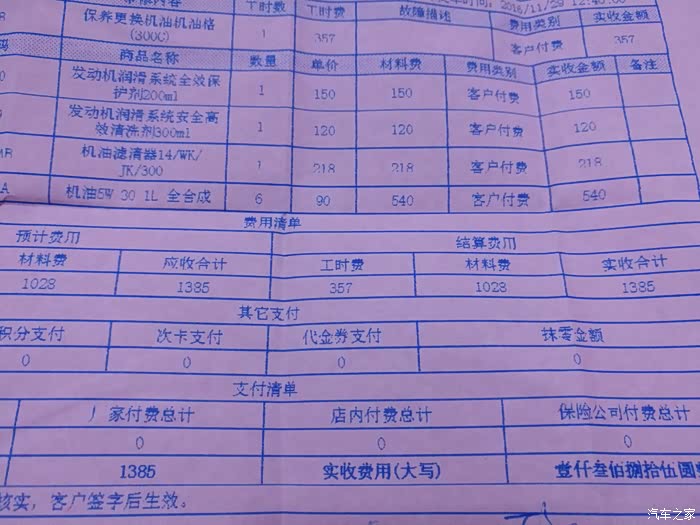 工时数 工时费 故障描述 费用类别 实收金额
保养更换机油机油格(300C) 1 357 客户付费 357
商品名称 数量 单价 材料费 费用类别 实收金额 备注
发动机润滑系统全效保护剂200ml 1 150 150 客户付费 150
发动机润滑系统安全高效清洗剂300ml 1 120 120 客户付费 120
机油滤清器14/WK/JK/300 1 218 218 客户付费 218
机油5W 30 1L 全合成 6 90 540 客户付费 540
费用清单
预计费用 结算费用
材料费 应收合计 工时费 材料费 实收合计
1028 1385 357 1028 1385
其它支付
积分支付 次卡支付 代金券支付 抹零金额
0 0 0 0
支付清单
厂家付费总计 店内付费总计 保险公司付费总计
0 0 0
1385 实收费用(大写) 壹仟叁佰捌拾伍圆
核实，客户签字后生效。
汽车之家